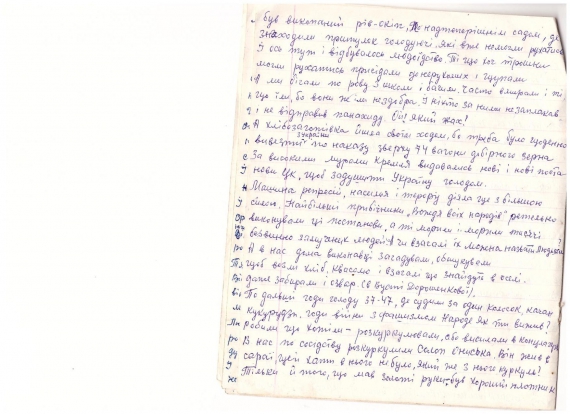 був викопаний рів-окіп, надтогорішнім садом, де
знаходили притулок голодуючі, які вже не могли рухатись
І ось тут і відбувалось людоїдство. Ті що хоч трошки
могли рухатись присідали до нерухомих і щупали
А ми бігали по рову з школи і бачили. Часто вмирали і ті
що їли, бо вони ж їли нездобра. І ніхто за ними не заплакав
і не відправив панахиду. Ой! Який жах!
А хлібозаготівка йшла своїм ходом, бо треба було щоденно
вивезти з України по наказу зверху 74 вагони добірного зерна
За високими мурами Кремля видавались нові і нові поста
нови ЦК, щоб задушити Україну голодом.
Машина репресій, насилля і терору діяла ще з більшою
силою. Найбільші прибічники "Вождя всіх народів" ретельно
виконували ці постанови, а ті морили і морили тисячі
безвинно замучених людей. А чи взагалі їх можна назвать людьми
А в нас дома виконавці загадували, обшукували
щоб взяли хліб, квасолю і взагалі що знайдуть в оселі.
даже забирали і одвар. (в Пусті Дорошенкової)
По далький годи голоду 37-47, де судили за один колосок, качан
кукурудзи. Годи війни з фашизмом Народе як ти вижив?
Робили що хотіли - розкуркулювали, або висилали в концлагеря
В нас по сусідству розкуркулили Силоп Єниська Він жив в
сараї, цеї хати в нього не було, який же з нього куркуль?
Тільки й того, що мав золоті руки, був хороший плотник